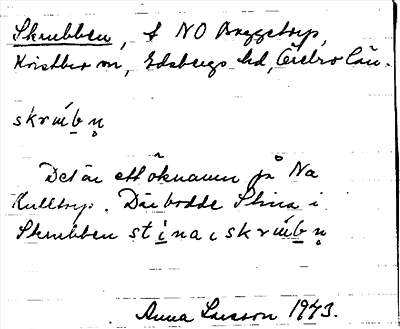 Skrubben, f NO Byggetorp,
Kvistbro sn, Edsbergs hd, Örebro län.
skrúbņ
Det är ett öknamn på Na
Kulltorp. Där bodde Stina i
Skrubben stina i skrúbņ
Anna Larsson 1943.